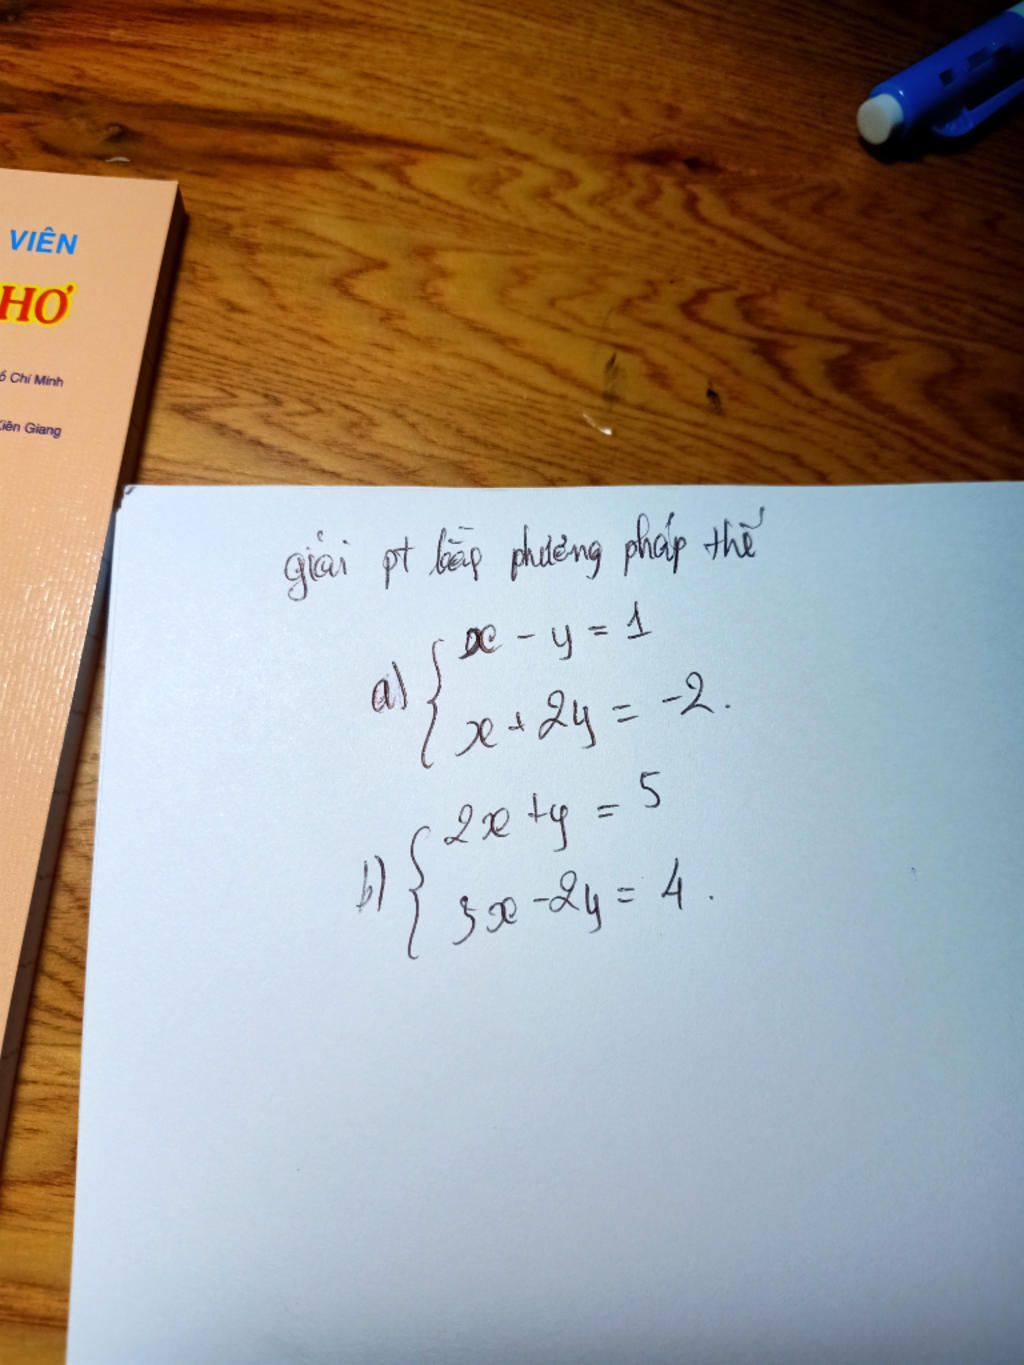 VIÊN
HƠ
ố Chí Minh
Kiên Giang
giải pt bằng phương pháp thế
a) { x - y = 1
x + 2y = -2.
b) { 2x + y = 5
3x - 2y = 4.